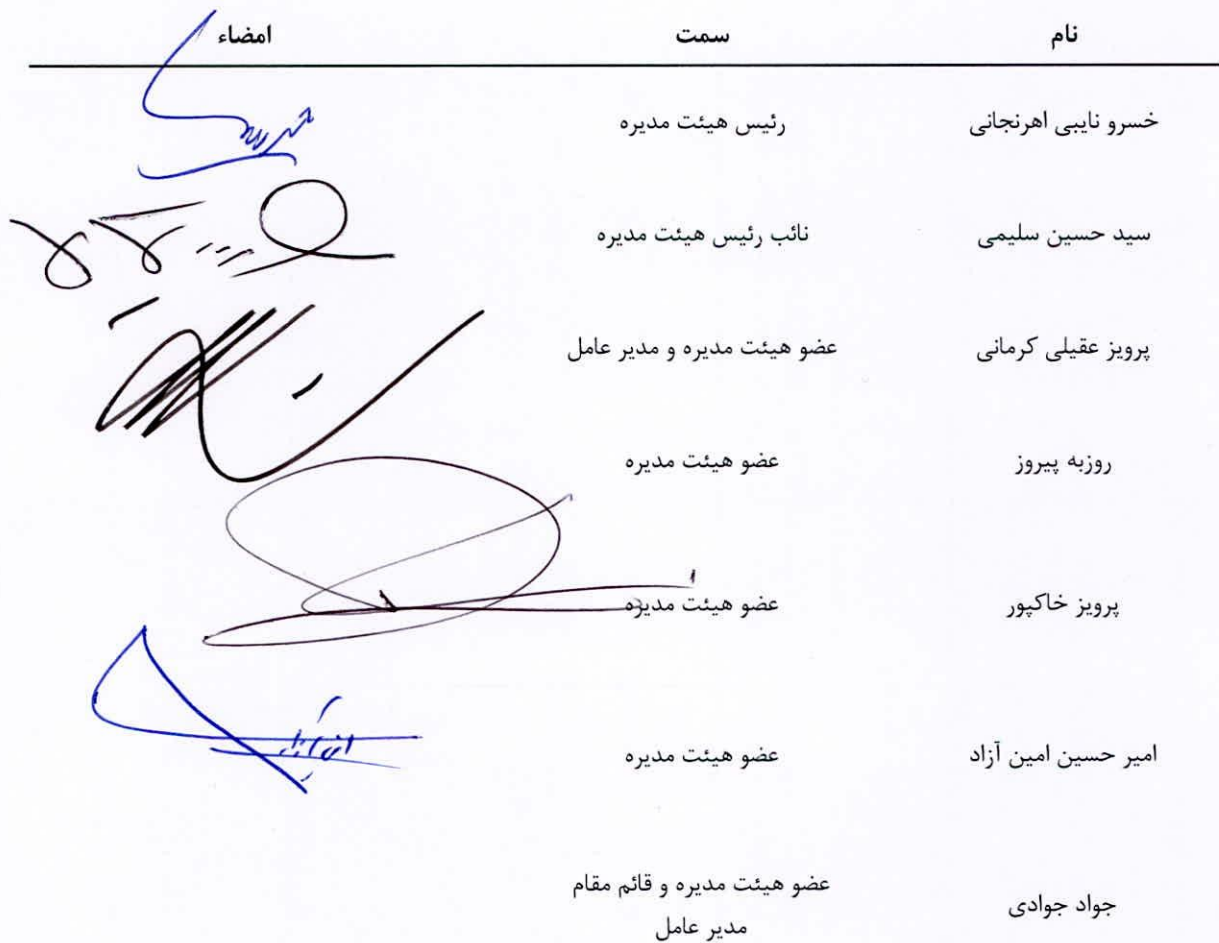 نام سمت امضاء
خسرو نایبی اهرنجانی رئیس هیئت مدیره
سید حسین سلیمی نائب رئیس هیئت مدیره
پرویز عقیلی کرمانی عضو هیئت مدیره و مدیر عامل
روزبه پیروز عضو هیئت مدیره
پرویز خاکپور عضو هیئت مدیره
امیر حسین امین آزاد عضو هیئت مدیره
جواد جوادی عضو هیئت مدیره و قائم مقام
مدیر عامل